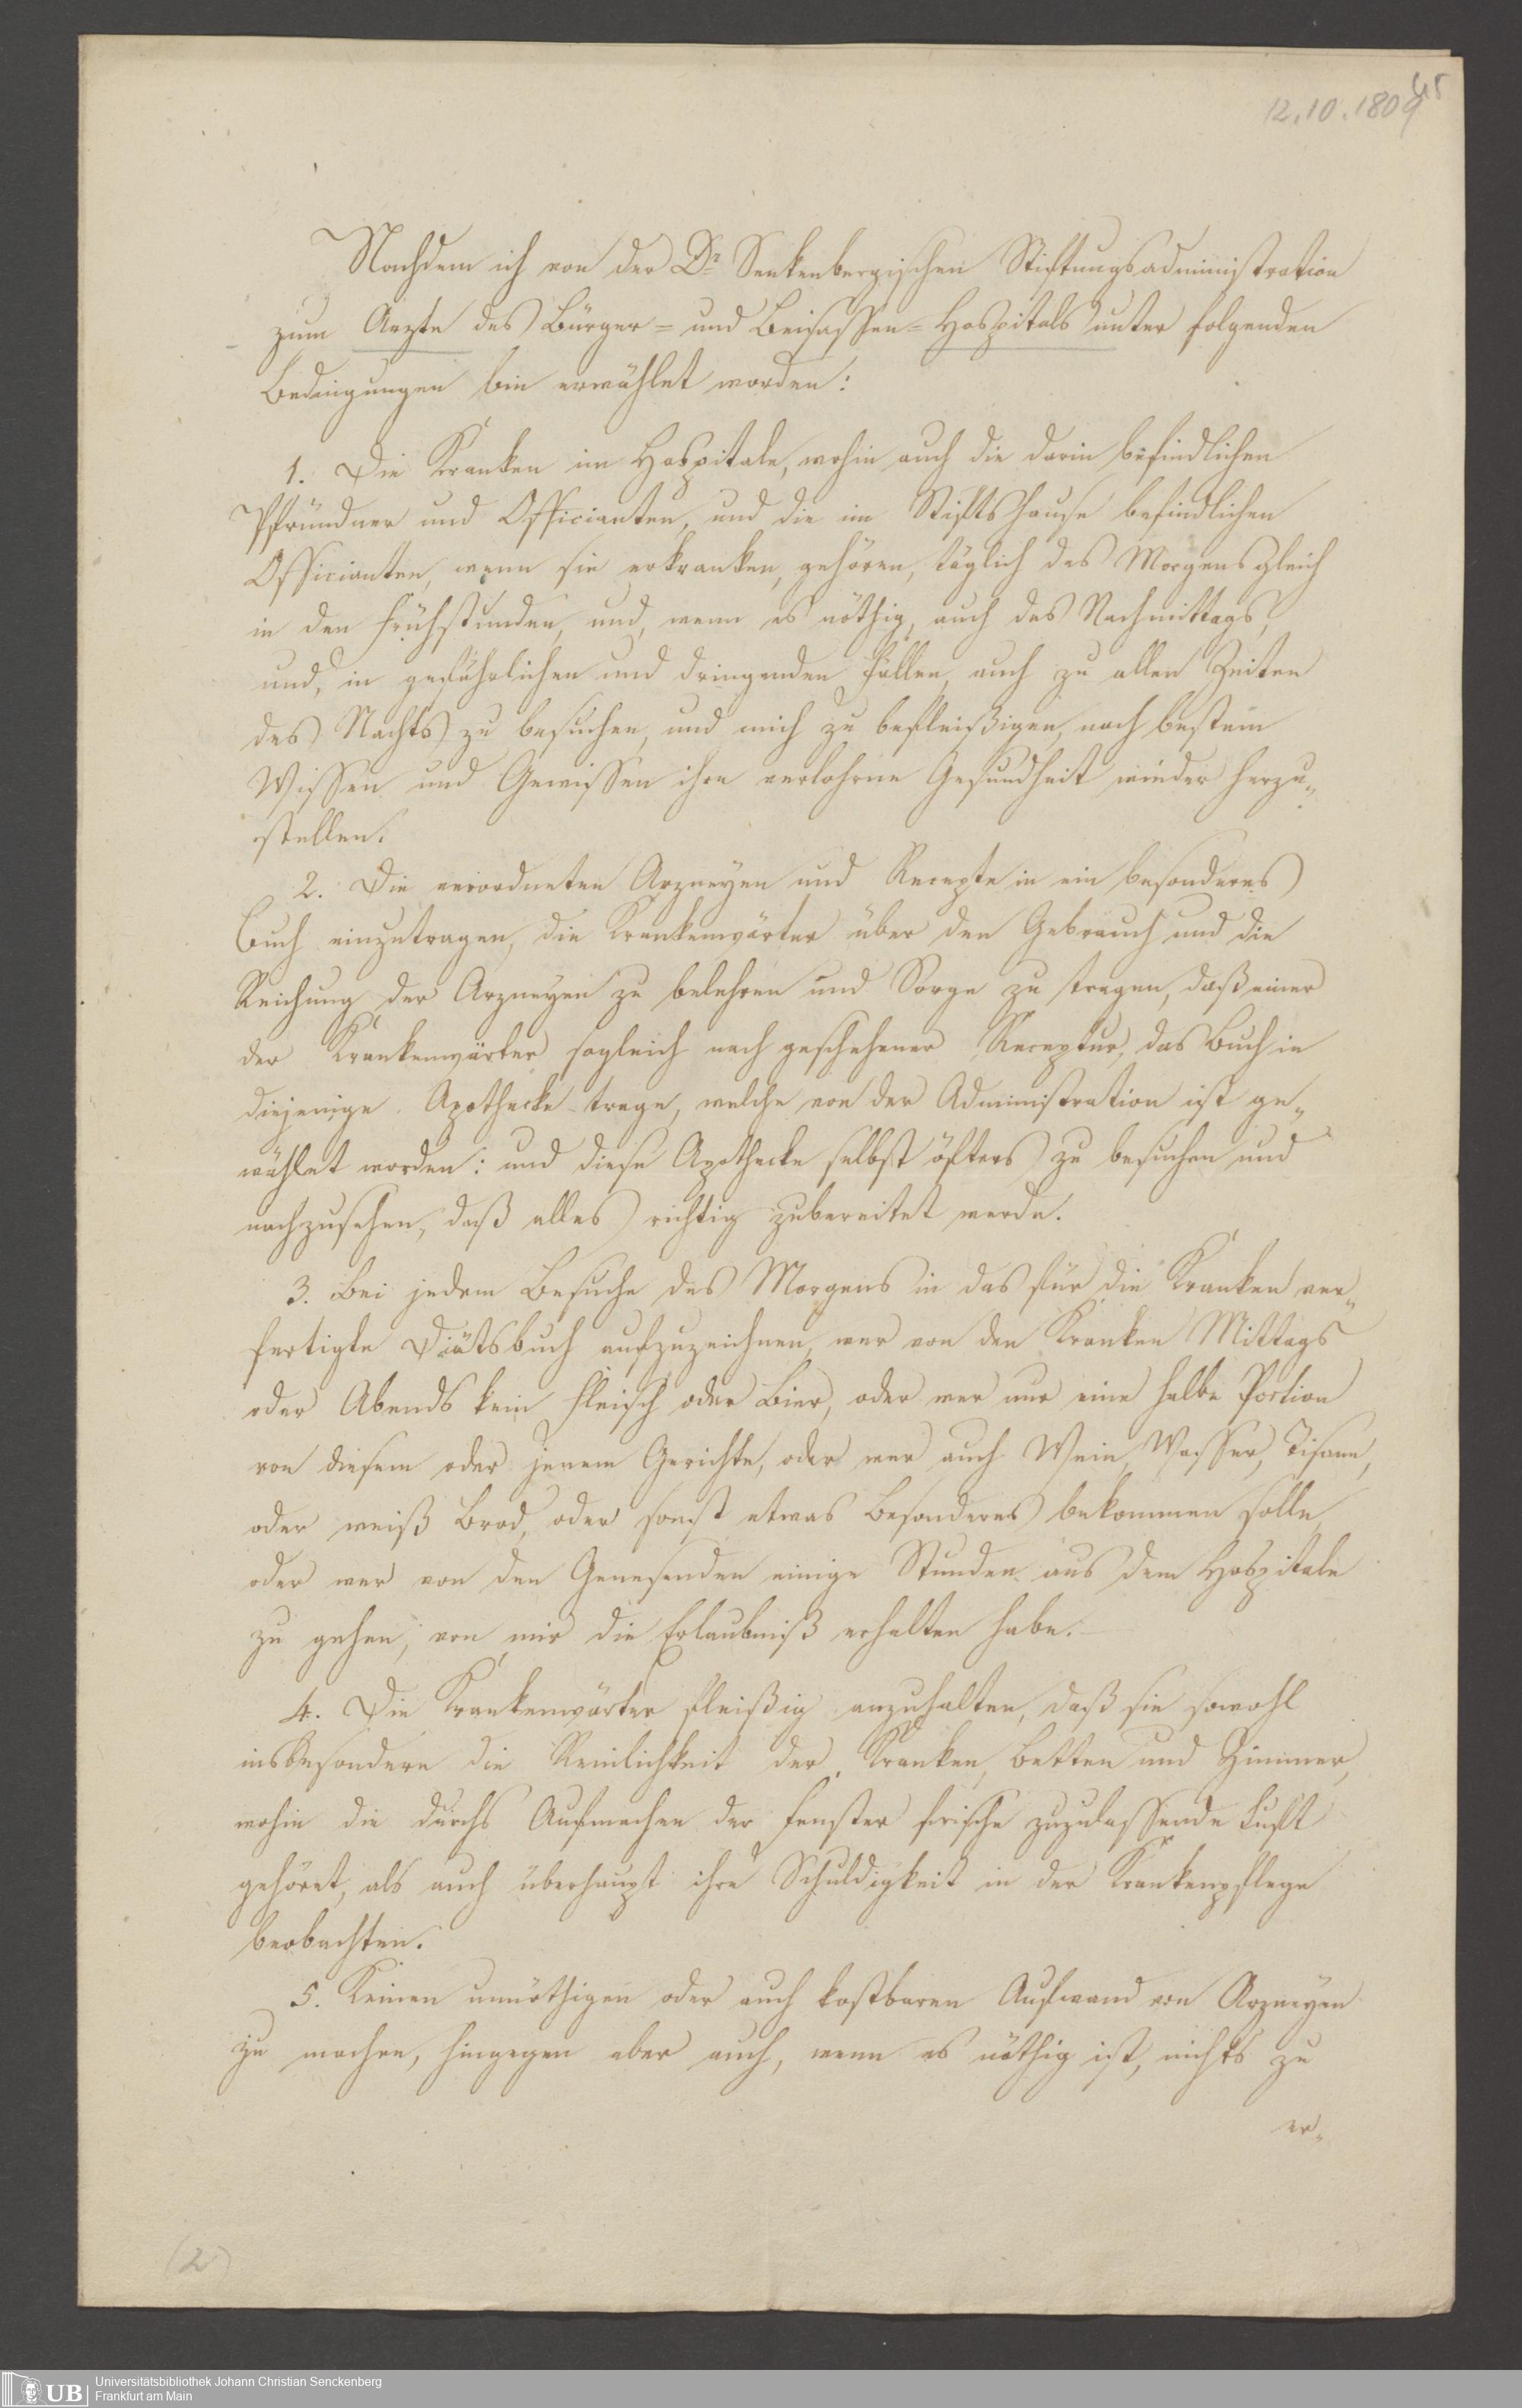 45
12.10.1809
Nachdem ich von der Dr. Senkenbergischen Stiftungsadministration
zum Arzte des Bürger- und Beisassen-Hospitals unter folgenden
Bedingungen bin erwählet worden:
1. Die Kranken im Hospitale, wohin auch die darin befindlichen
Pfründner und Officianten, und die im Stiftshause befindlichen
Officianten, wenn sie erkranken, gehören, täglich des Morgens gleich
in den Frühstunden, und, wenn es nöthig, auch des Nachmittags,
und, in gefährlichen und dringenden Fällen, auch zu allen Zeiten
des Nachts zu besuchen, und mich zu befleißigen, nach bestem
Wissen und Gewissen ihre verlohrne Gesundheit wieder herzu-
stellen.
2. Die verordneten Arzneyen und Recepte in ein besonderes
Buch einzutragen, die Krankenwärter über den Gebrauch und die
Reichung der Arzneyen zu belehren und Sorge zu tragen, daß einer
der Krankenwärter sogleich nach geschehener Receptur, das Buch in
diejenige Apothecke trage, welche von der Administration ist ge-
wählet worden: und diese Apothecke selbst öfters zu besuchen und
nachzusehen, daß alles richtig zubereitet werde.
3. Bei jedem Besuche des Morgens in das für die Kranken ver-
fertigte Diätsbuch aufzuzeichnen, wer von den Kranken Mittags
oder Abends kein Fleisch oder Bier, oder wer nur eine halbe Portion
von diesem oder jenem Gerichte, oder wer auch Wein, Wasser, Tisane,
oder weiß Brod, oder sonst etwas Besonderes bekommen solle,
oder wer von den Genesenden einige Stunden aus dem Hospitale
zu gehen, von mir die Erlaubniß erhalten habe.
4. Die Krankenwärter fleißig anzuhalten, daß sie sowohl
insbesondere die Reinlichkeit der Kranken, Betten und Zimmer,
wohin die durchs Aufmachen der Fenster frische zuzulassende Luft
gehöret, als auch überhaupt ihre Schuldigkeit in der Krankenpflege
beobachten.
5. Keinen unnöthigen oder auch kostbaren Aufwand von Arzneyen
zu machen, hingegen aber auch, wenn es nöthig ist, nichts zu
er-
(2)
UB
Universitätsbibliothek Johann Christian Senckenberg
Frankfurt am Main